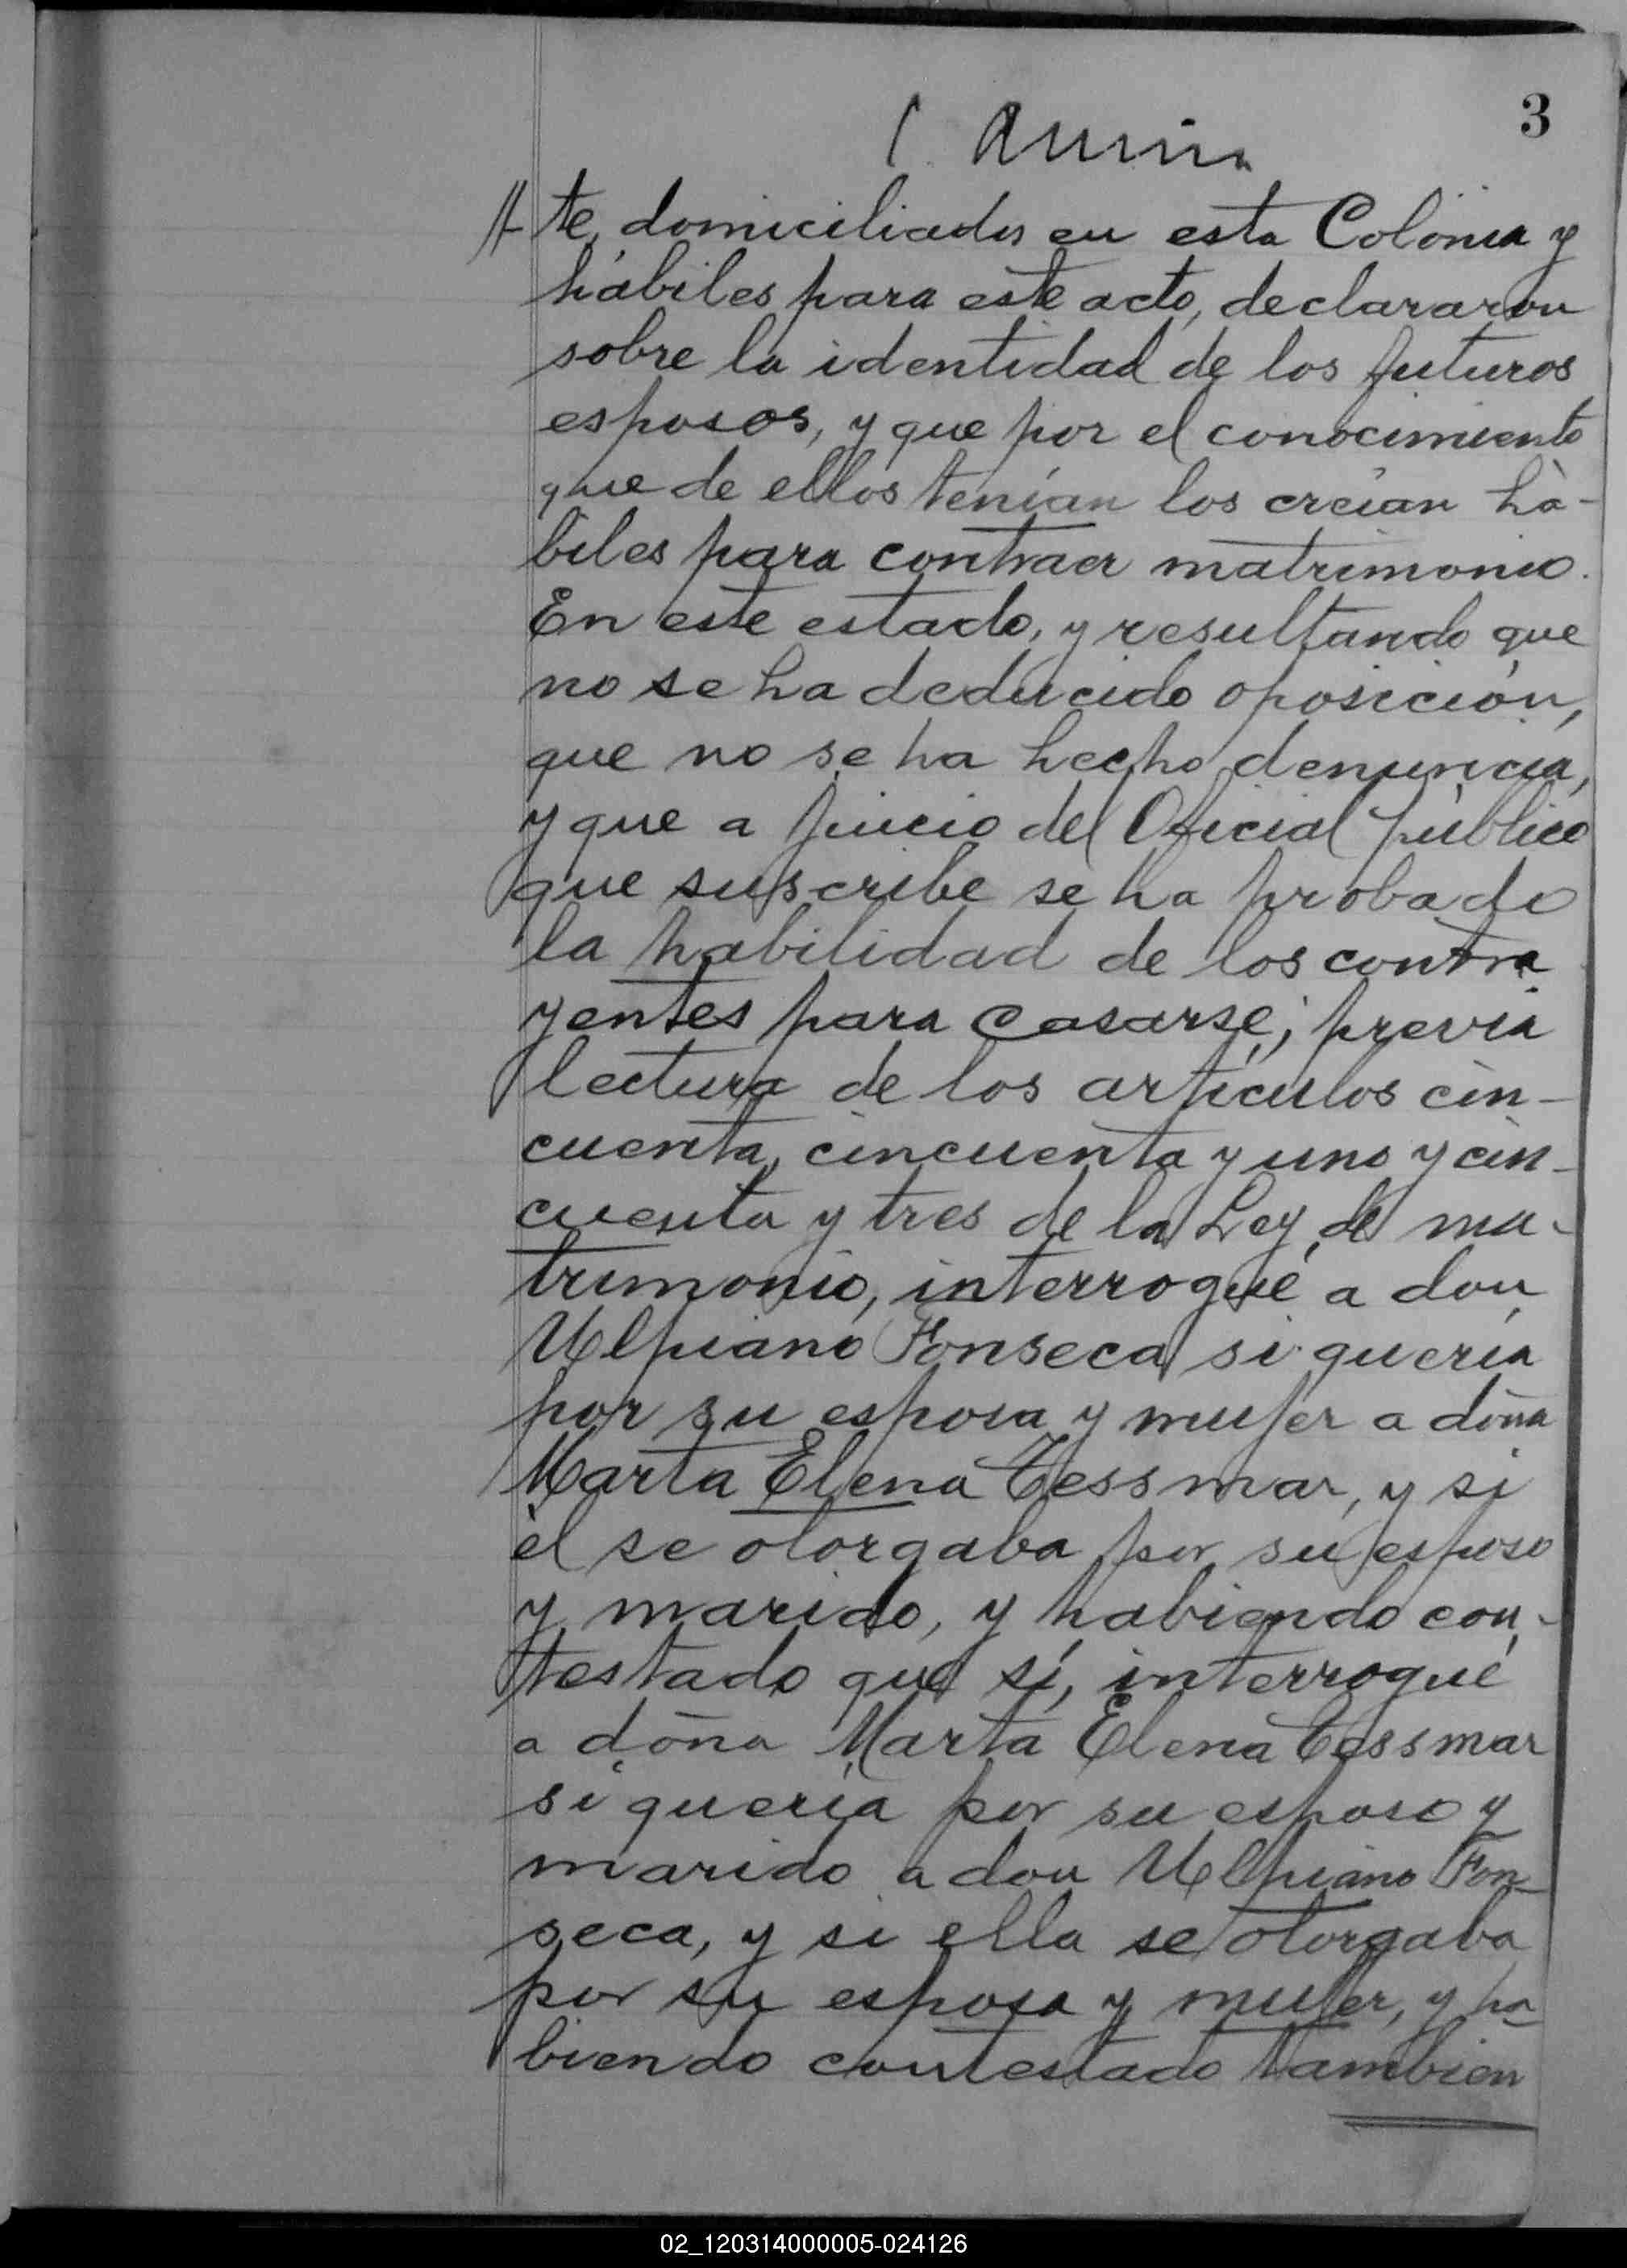 3
te, domiciliados en esta Colonia y
hábiles para este acto, declararon
sobre la identidad de los futuros
esposos, y que por el conocimiento
que de ellos tenían los creían há-
biles para contraer matrimonio.
En este estado, y resultando que
no se ha deducido oposición,
que no se ha hecho denuncia,
y que a juicio del Oficial público
que suscribe se ha probado
la habilidad de los contra
yentes para casarse; previa
lectura de los artículos cin-
cuenta, cincuenta y uno y cin-
cuenta y tres de la Ley de ma-
trimonio, interrogué a don
Ulpiano Fonseca si quería
por su esposa y mujer a doña
Marta Elena Tessmar, y si
él se otorgaba por su esposo
y marido, y habiendo con-
testado que sí, interrogué
a doña Marta Elena Tessmar
si quería por su esposo y
marido a don Ulpiano Fon-
seca, y si ella se otorgaba
por su esposa y mujer, y ha-
biendo contestado tambien
02_120314000005-024126